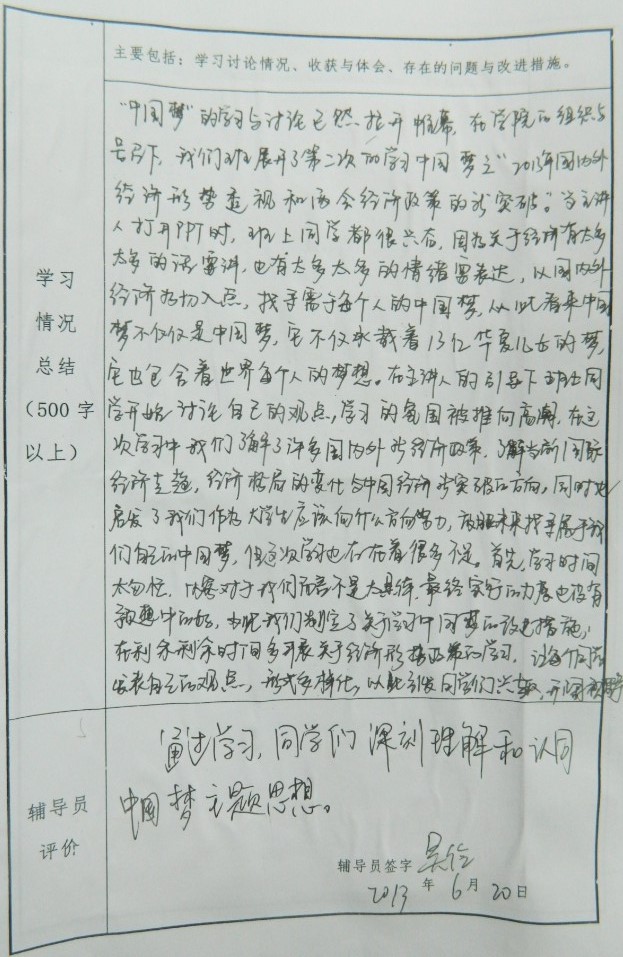 主要包括：学习讨论情况、收获与体会、存在的问题与改进措施。
学习
情况
总结
（500字
以上）
“中国梦”的学习与讨论已然拉开帷幕，在学院的组织与
号召下，我们班展开了第二次的学习中国梦之“2013年国内外
经济形势透视和两会经济政策的新突破”。当主讲
人打开PPT时，班上同学都很兴奋，因为关于经济有太多
太多的话要讲，也有太多太多的情绪需表达，以国内外
经济为切入点，找寻属于每个人的中国梦，从此看来中国
梦不仅仅是中国梦，它不仅承载着13亿华夏儿女的梦，
它也包含着世界每个人的梦想。在主讲人的引导下班上同
学开始讨论自己的观点，学习的氛围被推向高潮，在这
次学习中我们了解了许多国内外的经济政策，了解当前国际
经济走趋，经济格局的变化与中国经济的突破口方向，同时也
启发了我们作为大学生应该向什么方向努力，放眼未来找寻属于我
们自己的中国梦，但这次学习也存在着很多不足。首先，学习时间
太匆忙，内容对于我们而言不是太熟练，最终实行的力度也没有
预想中的好，为此我们制定了关于学习中国梦的改进措施：
在利余剩余时间多开展关于经济形势政策的学习，让每个同学
发表自己的观点，形式多样化，以此引发同学们兴趣，开阔视野
辅导员
评价
通过学习，同学们深刻理解和认同
中国梦主题思想。
辅导员签字
2013年6月20日